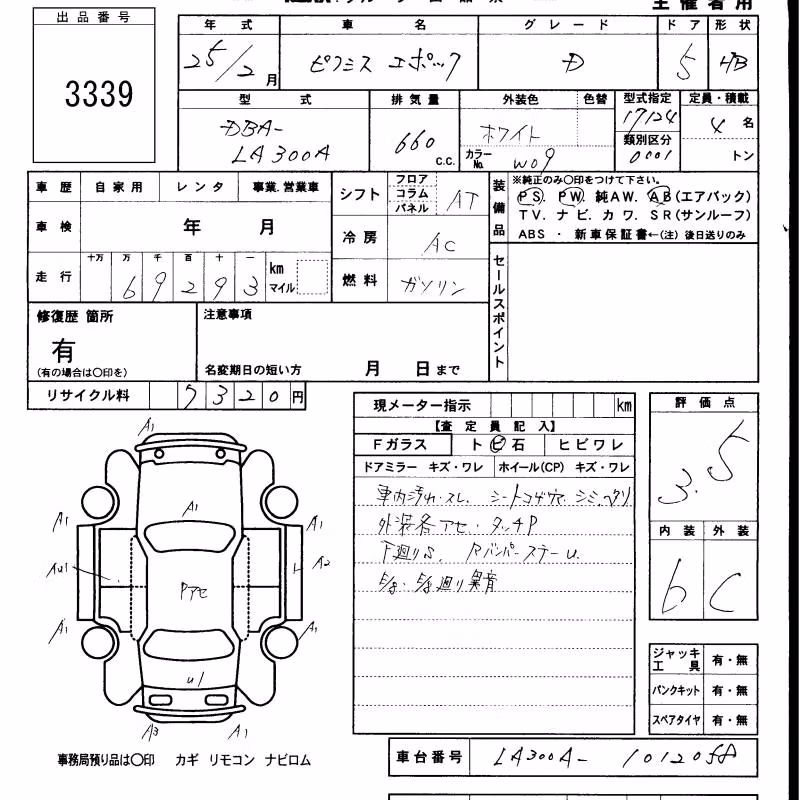 主催者用
出品番号 年式 車名 グレード ドア 形状
3339 25/2月 ピクシス エポック D 5 HB
型式 排気量 外装色 色替 型式指定 定員・積載
DBA-LA300A 660 C.C. ホワイト カラーNo. W09 17124 類別区分 0001 4名 トン
車歴 自家用 レンタ 事業.営業車 シフト フロア コラム パネル AT
装備品 ※純正のみ〇印をつけて下さい。
PS. PW. 純AW. AB(エアバック)
TV. ナビ. カワ. SR(サンルーフ)
ABS ・ 新車保証書←(注) 後日送りのみ
車検 年 月 冷房 AC
走行 十万 万 千 百 十 一 km マイル 燃料 ガソリン
6 9 2 9 3
セールスポイント
修復歴 箇所 注意事項
有
(有の場合は〇印を) 名変期日の短い方 月 日まで
リサイクル料 7 3 2 0 円
現メーター指示 km 評価点
【査定員記入】 3.5
Fガラス トビ石 ヒビワレ
ドアミラー キズ・ワレ ホイール(CP) キズ・ワレ
車内汚れ・スレ. シートコゲ穴
外装各アセ・タッチP
下廻りS. RバンパーステーU.
E/g・E/g廻り異音
内装 外装
6 C
A1
A1
A1 A1
AU1 A2
Pアセ
A1 A1
U1
A3 A1
ジャッキ工具 有・無
パンクキット 有・無
スペアタイヤ 有・無
事務局預り品は〇印 カギ リモコン ナビロム
車台番号 LA300A-1012058